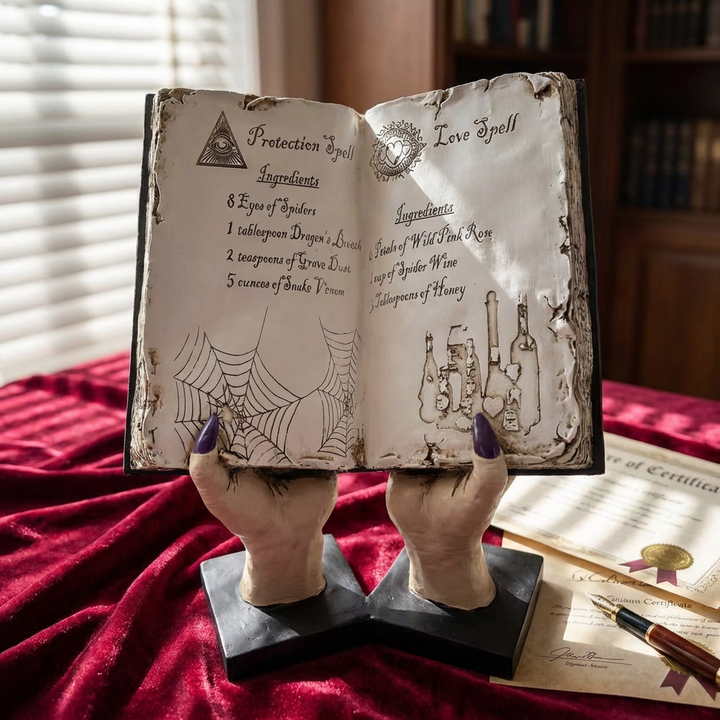 Protection Spell
Ingredients
8 Eyes of Spiders
1 tablespoon Dragon's Breath
2 teaspoons of Grave Dust
5 ounces of Snake Venom
Love Spell
Ingredients
Petals of Wild Pink Rose
cup of Spider Wine
3 Tablespoons of Honey
of Certifica
Certificate
Certificate